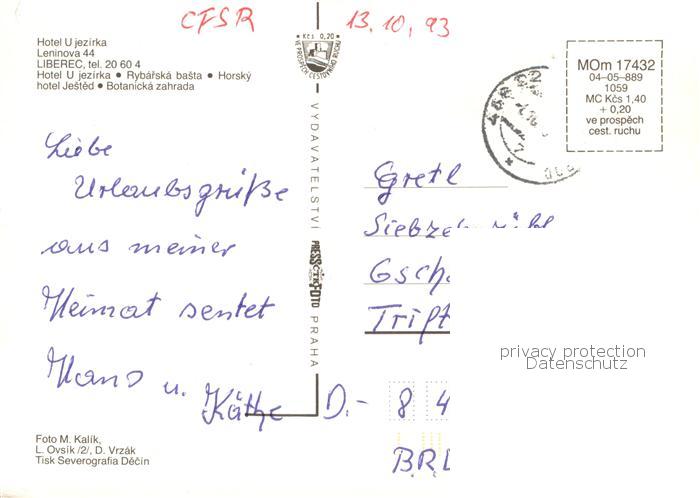 CFSR
13.10.93
Hotel U jezírka
Leninova 44
LIBEREC, tel. 20 60 4
Hotel U jezírka ● Rybářská bašta ● Horský
hotel Ještěd ● Botanická zahrada
Kčs 0,20
VE PROSPĚCH CESTOVNÍHO RUCHU
MOm 17432
04-05-889
1059
MC Kčs 1,40
+ 0,20
ve prospěch
cest. ruchu
Liebe
Urlaubsgrüße
aus meiner
Heimat sentet
Hans u. Käthe
VYDAVATELSTVÍ PRESSFOTO PRAHA
Gretl
Gsch
Trift
D.- 8 4
B.R.
privacy protection
Datenschutz
Foto M. Kalík,
L. Ovsík /2/, D. Vrzák
Tisk Severografia Děčín